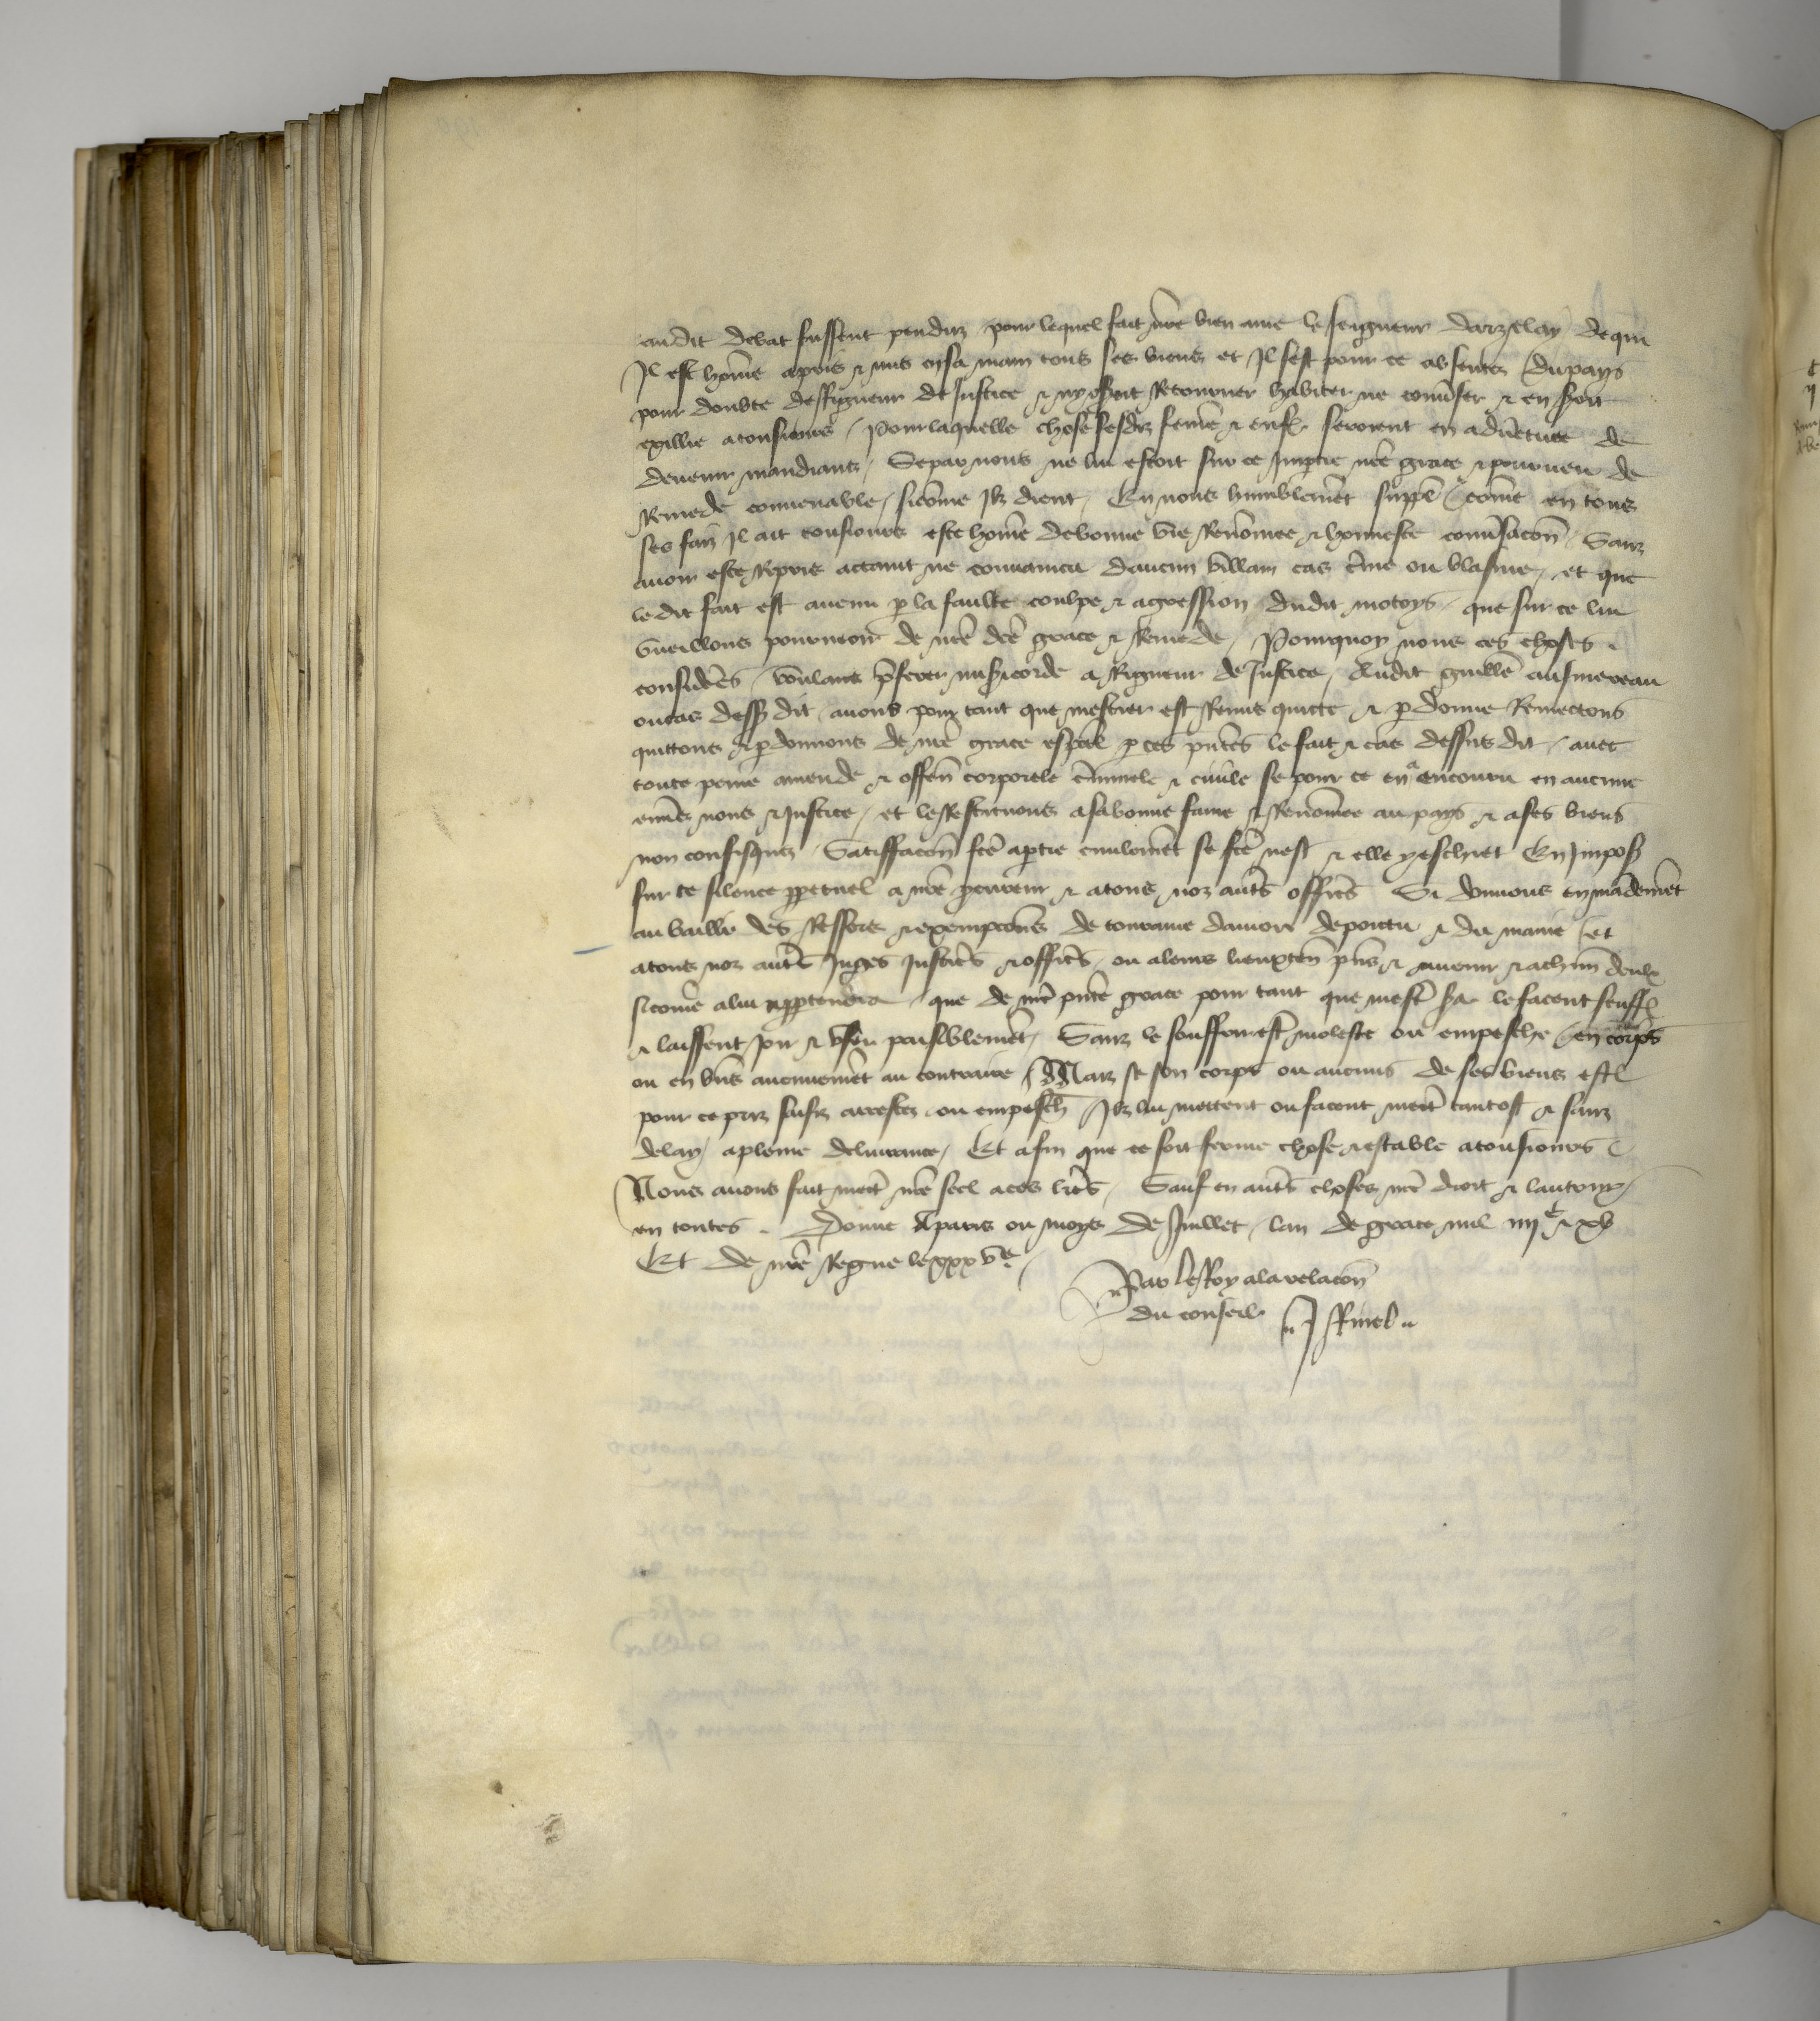 audit debat fussent penduz pour lequel fait nre bien ame le seigneur darzelay de qui
Il est home a pris & mis en sa main tous ses biens et Il sest pour ce absentez du pays
pour doubte de Rigueur de Justice & ny oseroit Retourner habiter ne conuser & en seroit
exillie a tousiours / Pour laquelle chose sesdiz feme & enf seroient en aduenture de
deuenir mandians / Se par nous ne lui estoit sur ce Impartie nre grace & pourueu de
Remede conuenable / sicome Ilz dient / En nous humblemet suppl come en tous
ses faiz Il ait tousiours este home de bonne vie Renomee & honneste conusacon / Sanz
auoir este Repris attaint ne conuaincu daucun villain cas crime ou blasme / et que
le dit fait est auenu p la faulte coulpe & agression dudit motoys / que sur ce lui
vueillons pourueoir de nre dce grace & Remede / Pourquoy nous ces choses
considerees voulans preferer misericorde a Rigueur de Justice / Audit guille aumereau
ou cas dessus dit auons pour tant que mestier est Remis quicte & pdonne Remectons
quittons & pdonnons de nre grace espal p ces pntes le fait & cas dessus dit / auec
toute peine amende & offen corporele criminele & ciuile se pour ce en a encouru en aucune
enuers nous & Justice / et le Restituons a sa bonne fame & Renomee au pays & a ses biens
non confisquez / Satiffacon fce a ptie ciuilemet se fce nest & elle y eschiet En Impos
sur ce silence ppetuel a nre procureur & a tous noz autes offices Si donnons en mandemet
au bailli des Ressors & exempcons de touraine daniou de poictu & du maine et
a tous noz autes Juges Justices & offices ou a leurs lieuxten pns & auenir & a chun deulx
sicome a lui appartendra / que de nre pnte grace pour tant que mest sa le facent seuff
& laissent Joir & user paisiblemet / Sanz le souffrir est moleste ou empesche en corps
ou en biens aucunemet au contraire / Maiz se son corps ou aucuns de ses biens est
pour ce priz saisiz arrestez ou empesch Ilz lui mettent ou facent mett tantost & sanz
delay a pleine deliurance / Et afin que ce soit ferme chose & estable a tousiours
Nous auons fait mett nre seel a ces lres / Sauf en autes choses nre droit & lautruy
en toutes . Donne A paris ou moys de Juillet / lan de grace mil iiijc & xv
Et de nre Regne le xxxve /
Par le Roy a la relacon
du conseil J Rinel